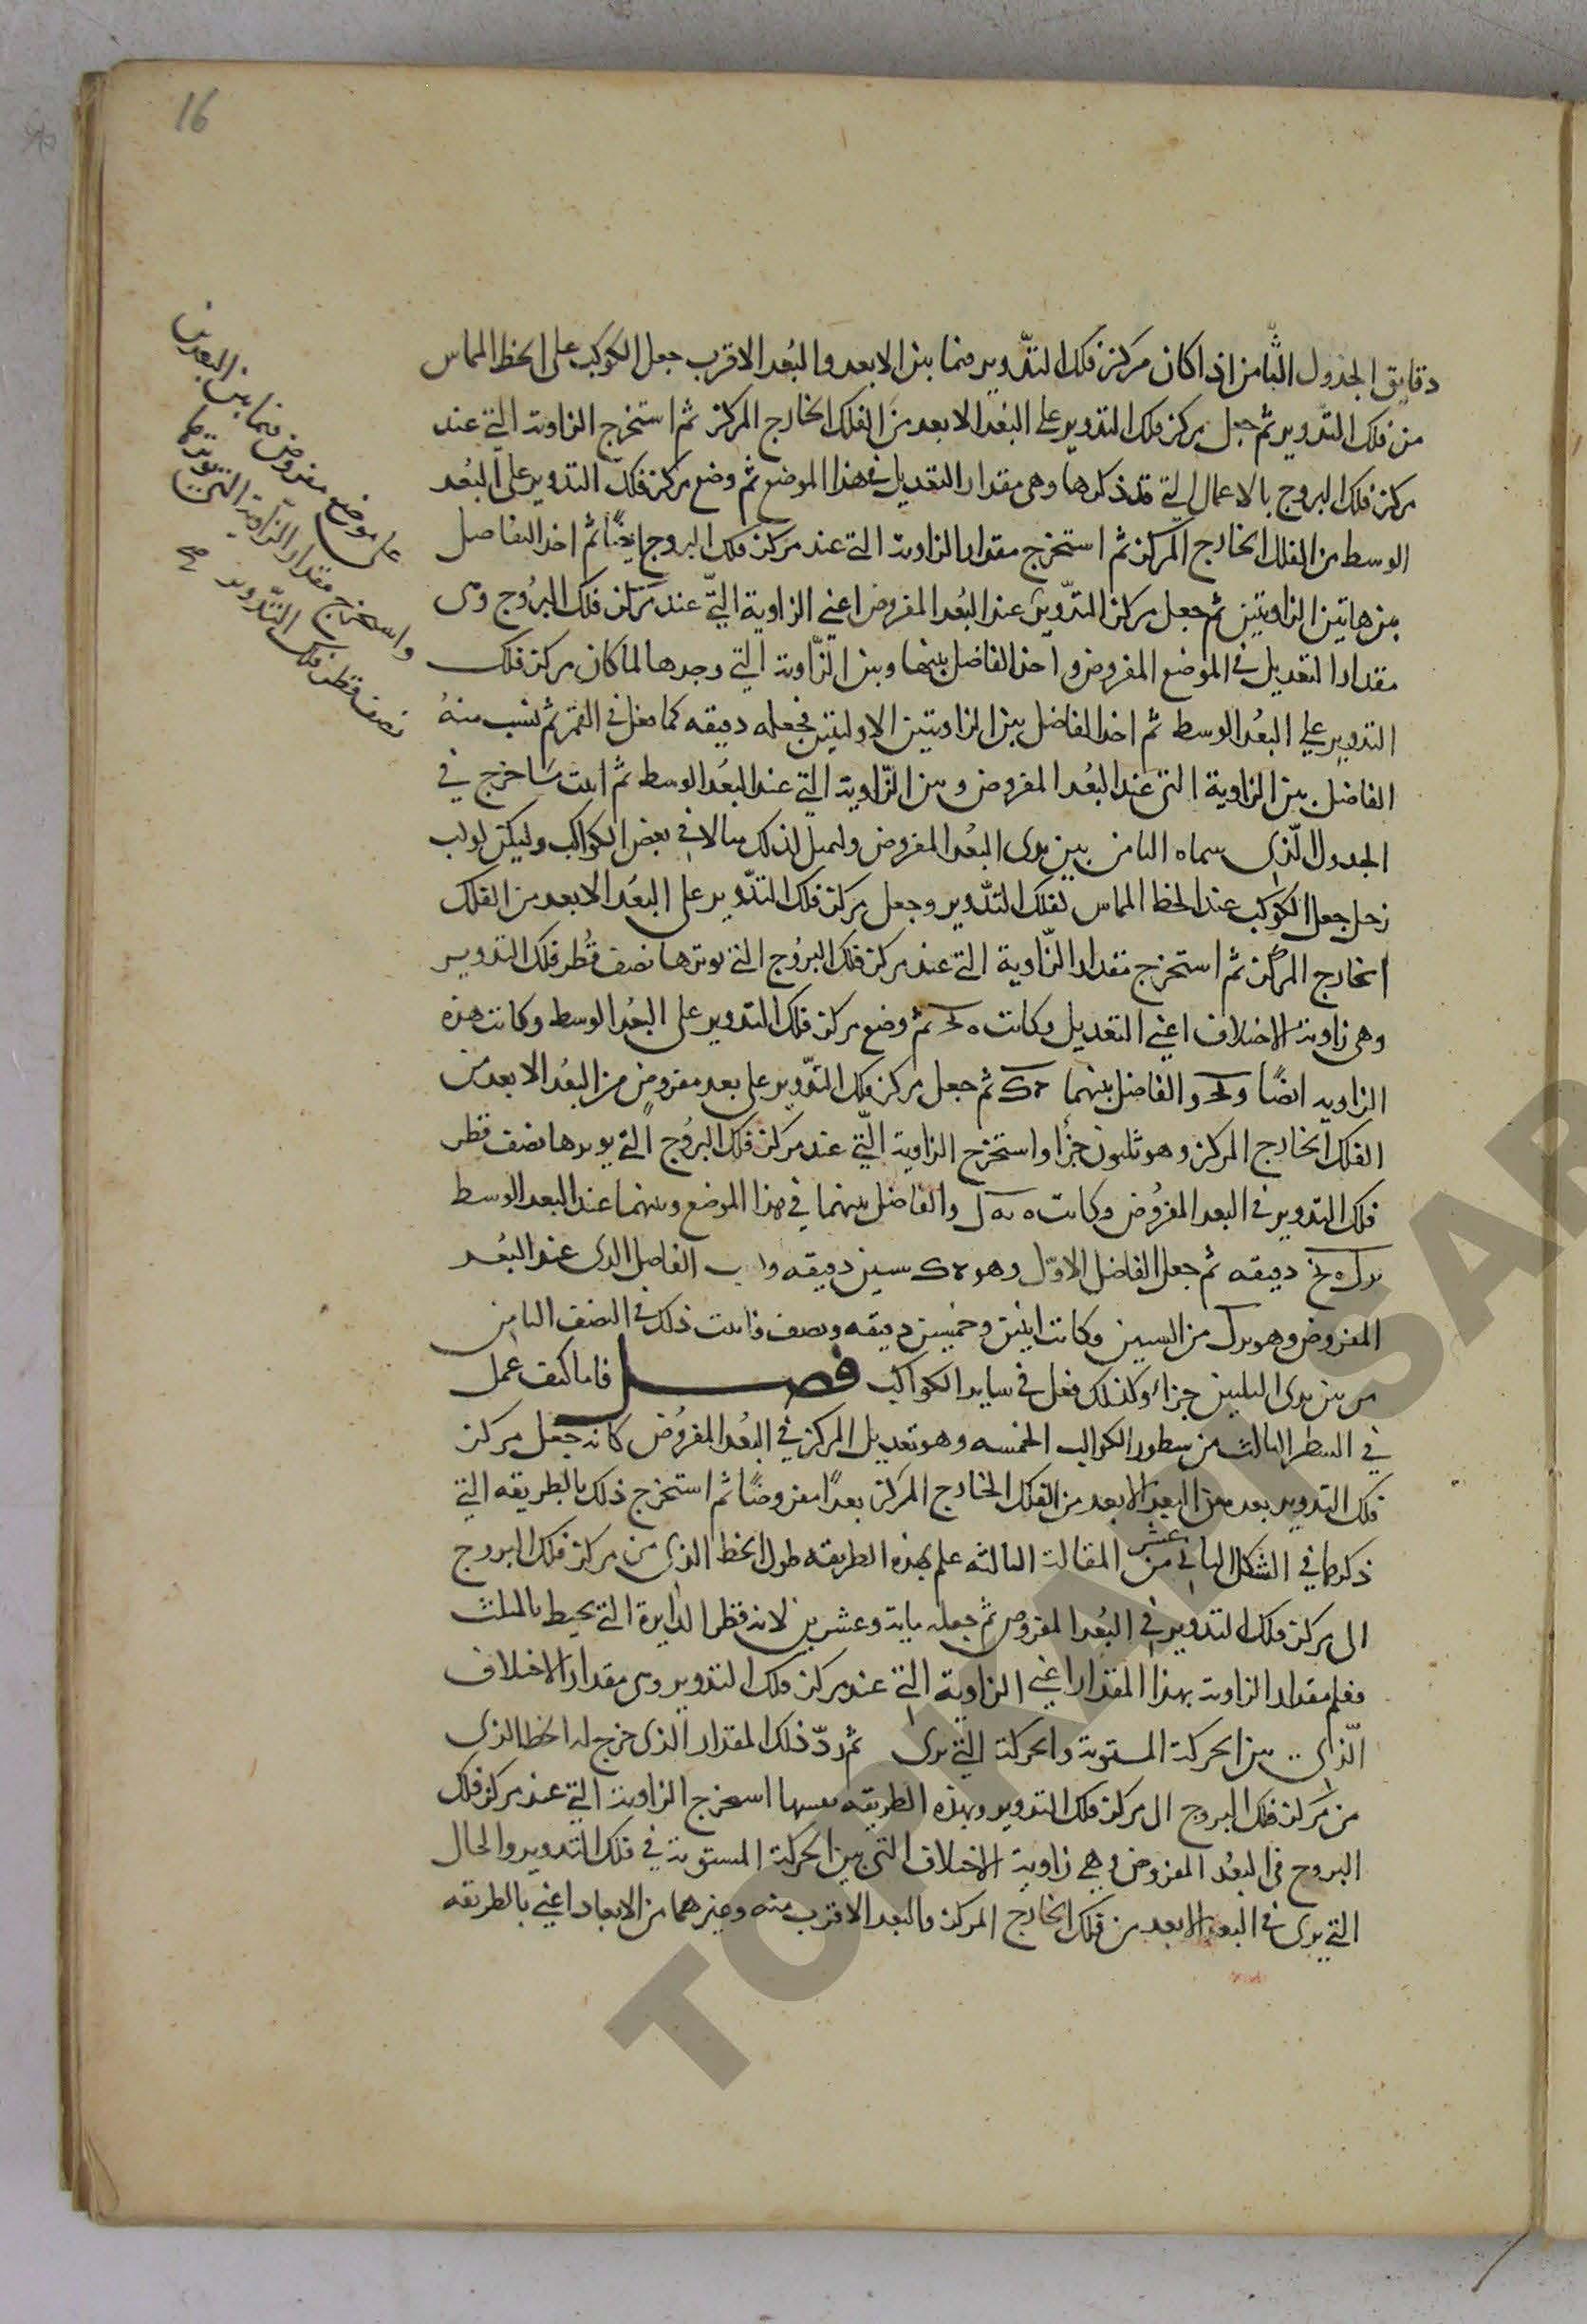 16
دقايق الجدول الثامن اذا كان مركز فلك التدوير فيما بين الابعد والبُعد الاقرب جعل الكوكب على الخط المماس
من فلك التدوير ثم جعل مركز فلك التدوير على البُعد الابعد من الفلك الخارج المركز ثم استخرج الزاوية التي عند
مركز فلك البروج بالاعمال التي قد ذكرها وهى مقدار التعديل في هذا الموضع ثم وضع مركز فلك التدوير على البُعد
الوسط من الفلك الخارج المركز ثم استخرج مقدار الزاوية التي عند مركز فلك البروج ايضًا ثم اخذ التفاضل
بين هاتين الزاويتين ثم جعل مركز التدوير عند البُعد المفروض اعني الزاوية التي عند مركز فلك البروج وهى
مقدار التعديل في الموضع المفروض واخذ الفاضل بينها وبين الزاوية التي وجدها لما كان مركز فلك
التدوير على البُعد الوسط ثم اخذ الفاضل بين الزاويتين الاوليتين فجعله دقيقه كما فعل في القمر ثم نسب منهُ
الفاضل بين الزاوية التى عند البُعد المفروض وبين الزاوية التي عند البُعد الوسط ثم اثبت ما خرج في
الجدول الذى سماه الثامن بين يدى البُعد المفروض ولنمثل لذلك مثالا في بعض الكواكب وليكن كوكب
زحل جعل الكوكب عند الخط المماس لفلك التدوير وجعل مركز فلك التدوير على البُعد الابعد من الفلك
الخارج المركز ثم استخرج مقدار الزاوية التى عند مركز فلك البروج التي يوترها نصف قُطر فلك التدوير
وهى زاوية الاختلاف اعني التعديل وكانت ثم وضع مركز فلك التدوير على البُعد الوسط وكانت هذه
الزاوية ايضًا والفاضل بينهما ثم جعل مركز فلك التدوير على بعد مفروض من البُعد الابعد من
الفلك الخارج المركز وهو ثلثون جزًا واستخرج الزاوية التي عند مركز فلك البروج التي يوترها نصف قطر
فلك التدوير في البعد المفروض وكانت والفاضل بينهما في هذا الموضع وبينهما عند البعد الوسط
دقيقه ثم جعل الفاضل الاول وهو ستين دقيقه الفاضل الذى عند البُعد
المفروض وهو من الستين وكانت اثنين وخمسين دقيقه ونصف فاثبت ذلك في الصف الثامن
من بين يدى الثلثين جزاء وكذلك فعل في ساير الكواكب فصل فاما كيف عمل
في السطر الثالث من سطور الكواكب الخمسه وهو تعديل المركز في البُعد المفروض كانه جعل مركز
فلك التدوير بعد من البعد الابعد من الفلك الخارج المركز بعدًا مفروضًا ثم استخرج ذلك بالطريقه التي
ذكرها في الشكل الثانى عشر من المقالة الثالثه علم بهذه الطريقه طول الخط الذى من مركز فلك البروج
الى مركز فلك التدوير في البُعد المفروض ثم جعله ماية وعشرين لانه قطر الدايرة التي يحيط بالمثلث
فعلم مقدار الزاوية بهذا المقدار اعني الزاوية التي عند مركز فلك التدوير وهى مقدار الاختلاف
الذى بين الحركة المستوية والحركة التي يرى ثم ردّ ذلك المقدار الذى خرج له الخط الذى
من مركز فلك البروج الى مركز فلك التدوير وبهذه الطريقه بعينها استخرج الزاوية التي عند مركز فلك
البروج في البعُد المفروض وهى زاوية الاختلاف التى بين الحركة المستوية في فلك التدوير والحال
التي يرى في البعد الابعد من فلك الخارج المركز والبعد الاقرب منه وغيرهما من الابعاد اعني بالطريقه
على موضع مفروض فيما بين البعدين
واستخرج مقدار الزاوية التي يوترها
نصف قطر فلك التدوير صح
TOPKAPI SAR